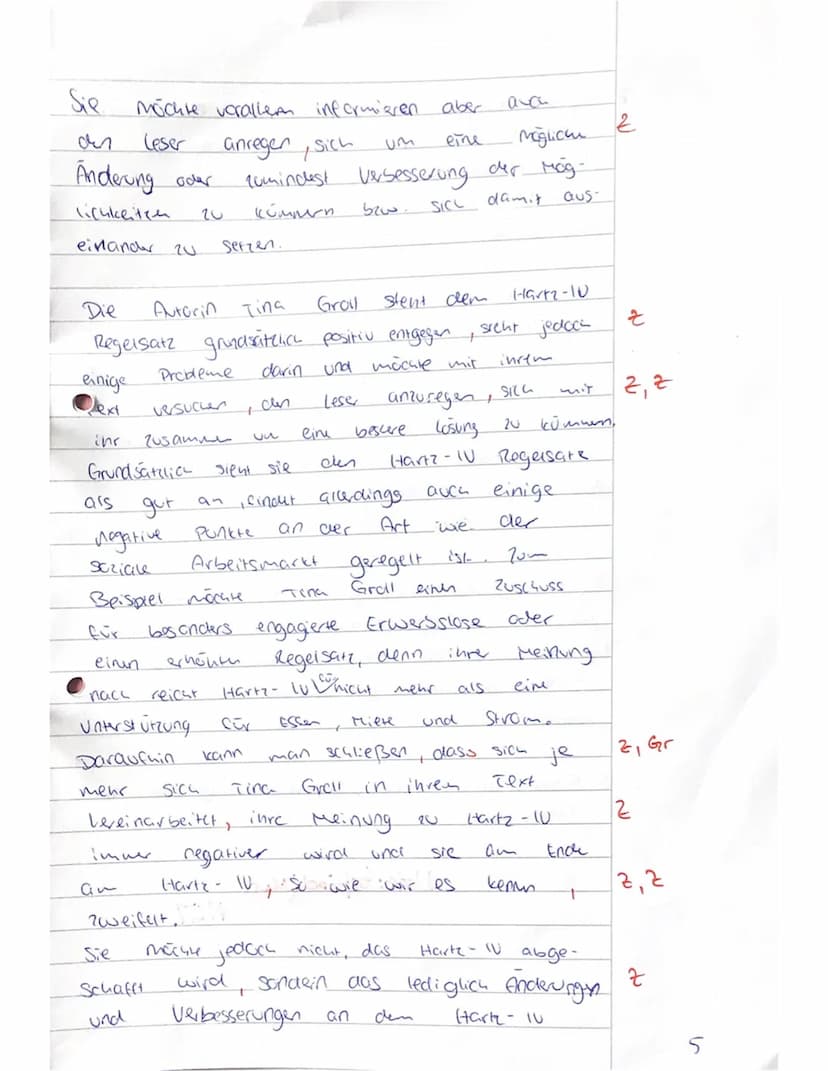 Sie möchte vorallem informieren aber auch
den Leser anregen, sich um eine mögliche
Z
Änderung oder zumindest Verbesserung der Mög-
lichkeiten zu kümmern bzw. sich damit aus-
einander zu setzen.
Die Autorin Tina Groll steht dem Hartz-IV
Regelsatz grundsätzlich positiv entgegen, sieht jedoch
Z
einige Probleme darin und möchte mit ihrem
Text versuchen, den Leser anzuregen, sich mit
Z, Z
ihr zusammen um eine bessere Lösung zu kümmern.
Grundsätzlich sieht sie den Hartz-IV Regelsatz
als gut an, findet allerdings auch einige
negative Punkte an der Art wie der
soziale Arbeitsmarkt geregelt ist. Zum
Beispiel möchte Tina Groll einen Zuschuss
für besonders engagierte Erwerbslose oder
einen erhöhten Regelsatz, denn ihrer Meinung
nach reicht Hartz-IV für nicht mehr als eine
Unterstützung für Essen, Miete und Strom.
Daraufhin kann man schließen, dass sich je
Z, Gr
mehr sich Tina Groll in ihren Text
hereinarbeitet, ihre Meinung zu Hartz-IV
Z
immer negativer wird und sie am Ende
an Hartz-IV, so wie wir es kennen,
Z, Z
zweifelt.
Sie möchte jedoch nicht, das Hartz-IV abge-
schafft wird, sondern das lediglich Änderungen
Z
und Verbesserungen an dem Hartz-IV
5